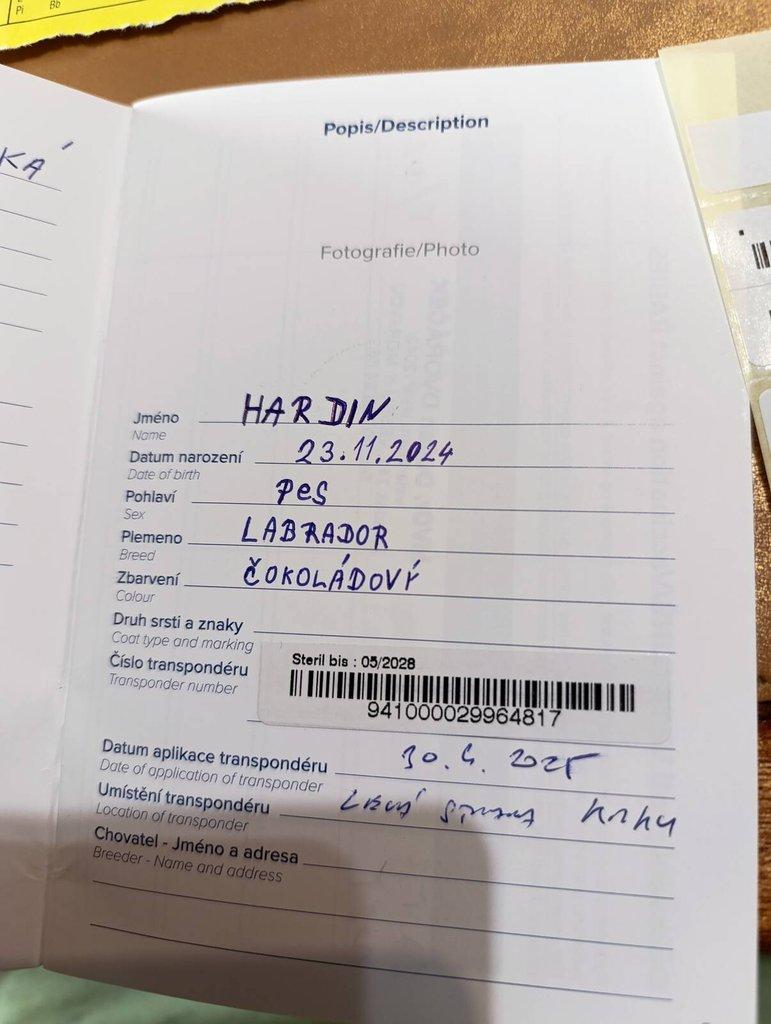 Pi Bb
KÁ
Popis/Description
Fotografie/Photo
Jméno HARDIN
Name
Datum narození 23.11.2024
Date of birth
Pohlaví Pes
Sex
Plemeno LABRADOR
Breed
Zbarvení ČOKOLÁDOVÝ
Colour
Druh srsti a znaky
Coat type and marking
Číslo transpondéru
Transponder number
Steril bis : 05/2028
941000029964817
Datum aplikace transpondéru 30.4. 2025
Date of application of transponder
Umístění transpondéru Levá strana krku
Location of transponder
Chovatel - Jméno a adresa
Breeder - Name and address